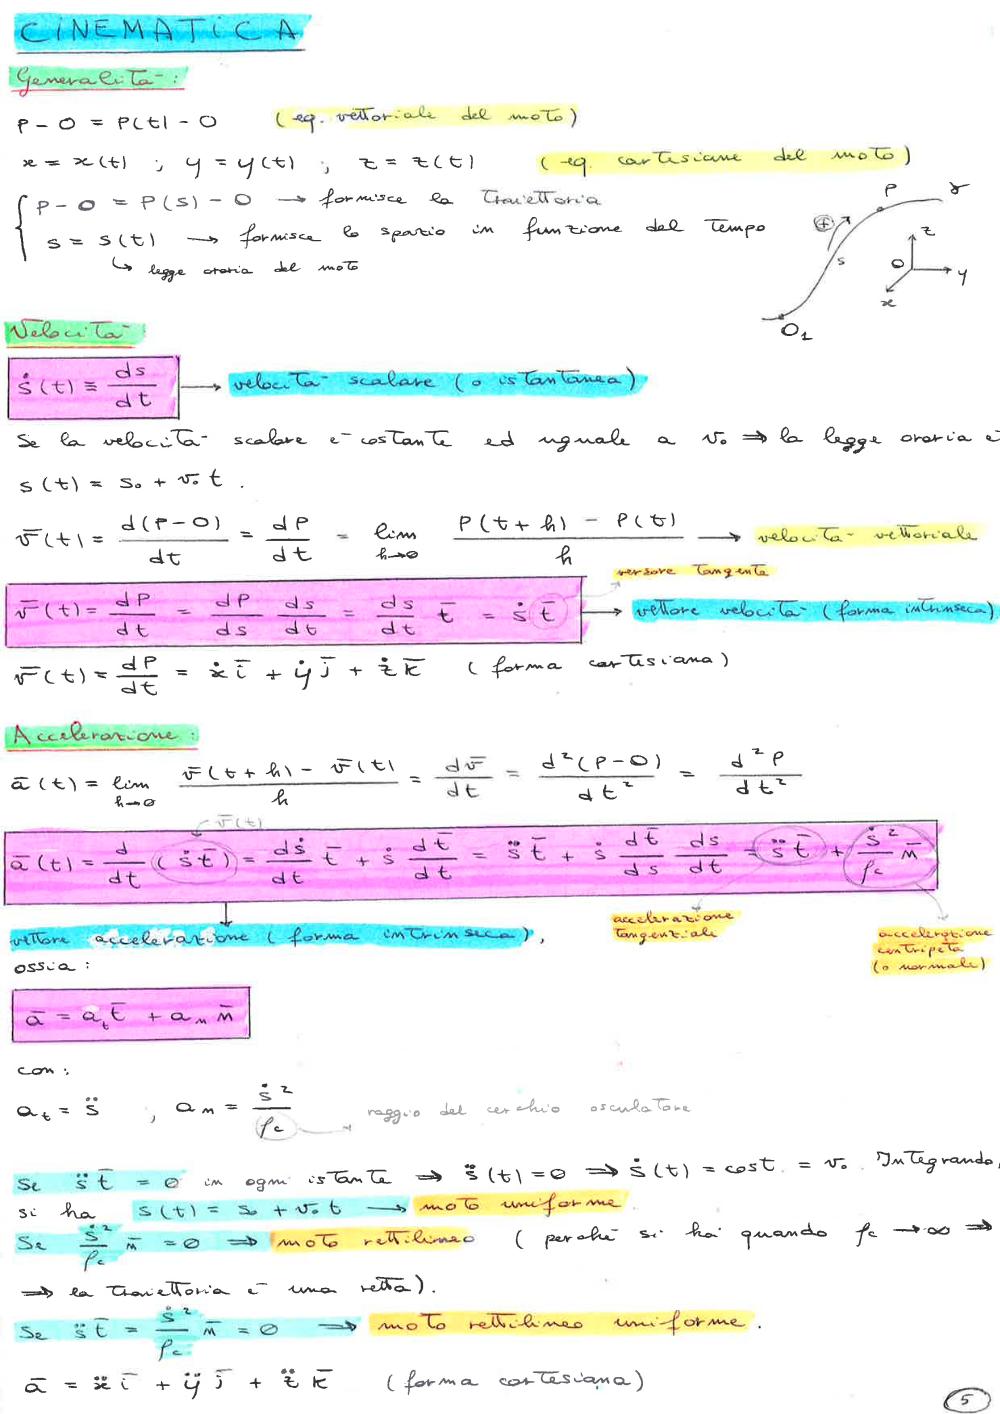 CINEMATICA
Generalità:
P - O = P(t) - O (eq. vettoriale del moto)
x = x(t) ; y = y(t) ; z = z(t) (eq. cartesiane del moto)
P - O = P(s) - O → fornisce la traiettoria
s = s(t) → fornisce lo spazio in funzione del tempo
↳ legge oraria del moto
P γ
⊕ s
z O y x
O₁
Velocità
ṡ(t) ≡ ds/dt → velocità scalare (o istantanea)
Se la velocità scalare è costante ed uguale a v₀ ⇒ la legge oraria è
s(t) = s₀ + v₀ t .
v̄(t) = d(P-O)/dt = dP/dt = lim h→0 P(t+h) - P(t)/h → velocità vettoriale
versore tangente
v̄(t) = dP/dt = dP/ds ds/dt = ds/dt t̄ = ṡ t̄ → vettore velocità (forma intrinseca)
v̄(t) = dP/dt = ẋ ī + ẏ j̄ + ż k̄ (forma cartesiana)
Accelerazione:
ā(t) = lim h→0 v̄(t+h) - v̄(t)/h = dv̄/dt = d²(P-O)/dt² = d²P/dt²
v̄(t)
ā(t) = d/dt (ṡ t̄) = dṡ/dt t̄ + ṡ dt̄/dt = s̈ t̄ + ṡ dt̄/ds ds/dt = s̈ t̄ + ṡ²/ρc n̄
vettore accelerazione (forma intrinseca),
accelerazione tangenziale
accelerazione centripeta (o normale)
ossia:
ā = aₜ t̄ + aₙ n̄
con:
aₜ = s̈ , aₙ = ṡ²/ρc → raggio del cerchio osculatore
Se s̈ t̄ = 0 in ogni istante ⇒ s̈(t) = 0 ⇒ ṡ(t) = cost. = v₀. Integrando,
si ha s(t) = s₀ + v₀ t → moto uniforme.
Se ṡ²/ρc n̄ = 0 ⇒ moto rettilineo (perchè si ha quando ρc → ∞ ⇒
⇒ la traiettoria è una retta).
Se s̈ t̄ = ṡ²/ρc n̄ = 0 ⇒ moto rettilineo uniforme.
ā = ẍ ī + ÿ j̄ + z̈ k̄ (forma cartesiana)
5